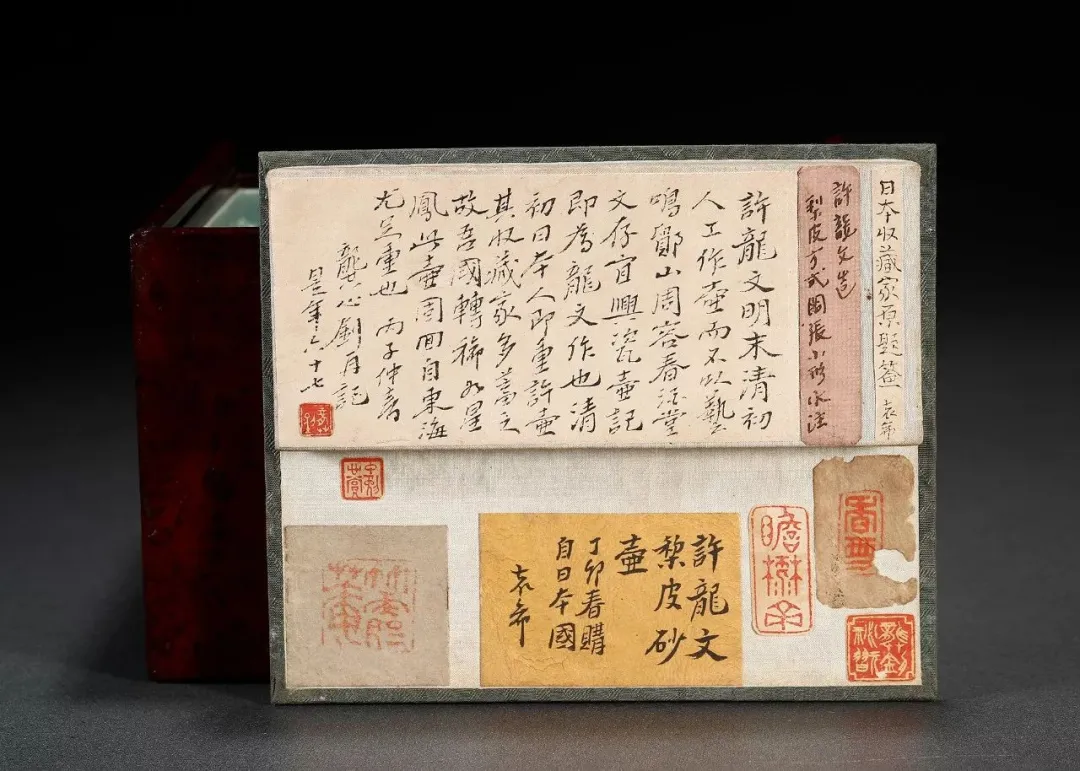 日本收藏家原題簽 袁希
許龍文造
梨皮方式
許龍文明末清初
人工作壺而不以藝
鳴鄞山周容春酒堂
文存宜興瓷壺記
即為龍文作也清
初日本人即重許壺
其收藏家多蓄之
故吾國轉稀如星
鳳此壺周回自東海
尤足重也 丙子仲春
龔心釗再記
是年六十七
許龍文
梨皮砂
壺
丁卯春購
自日本國
袁希